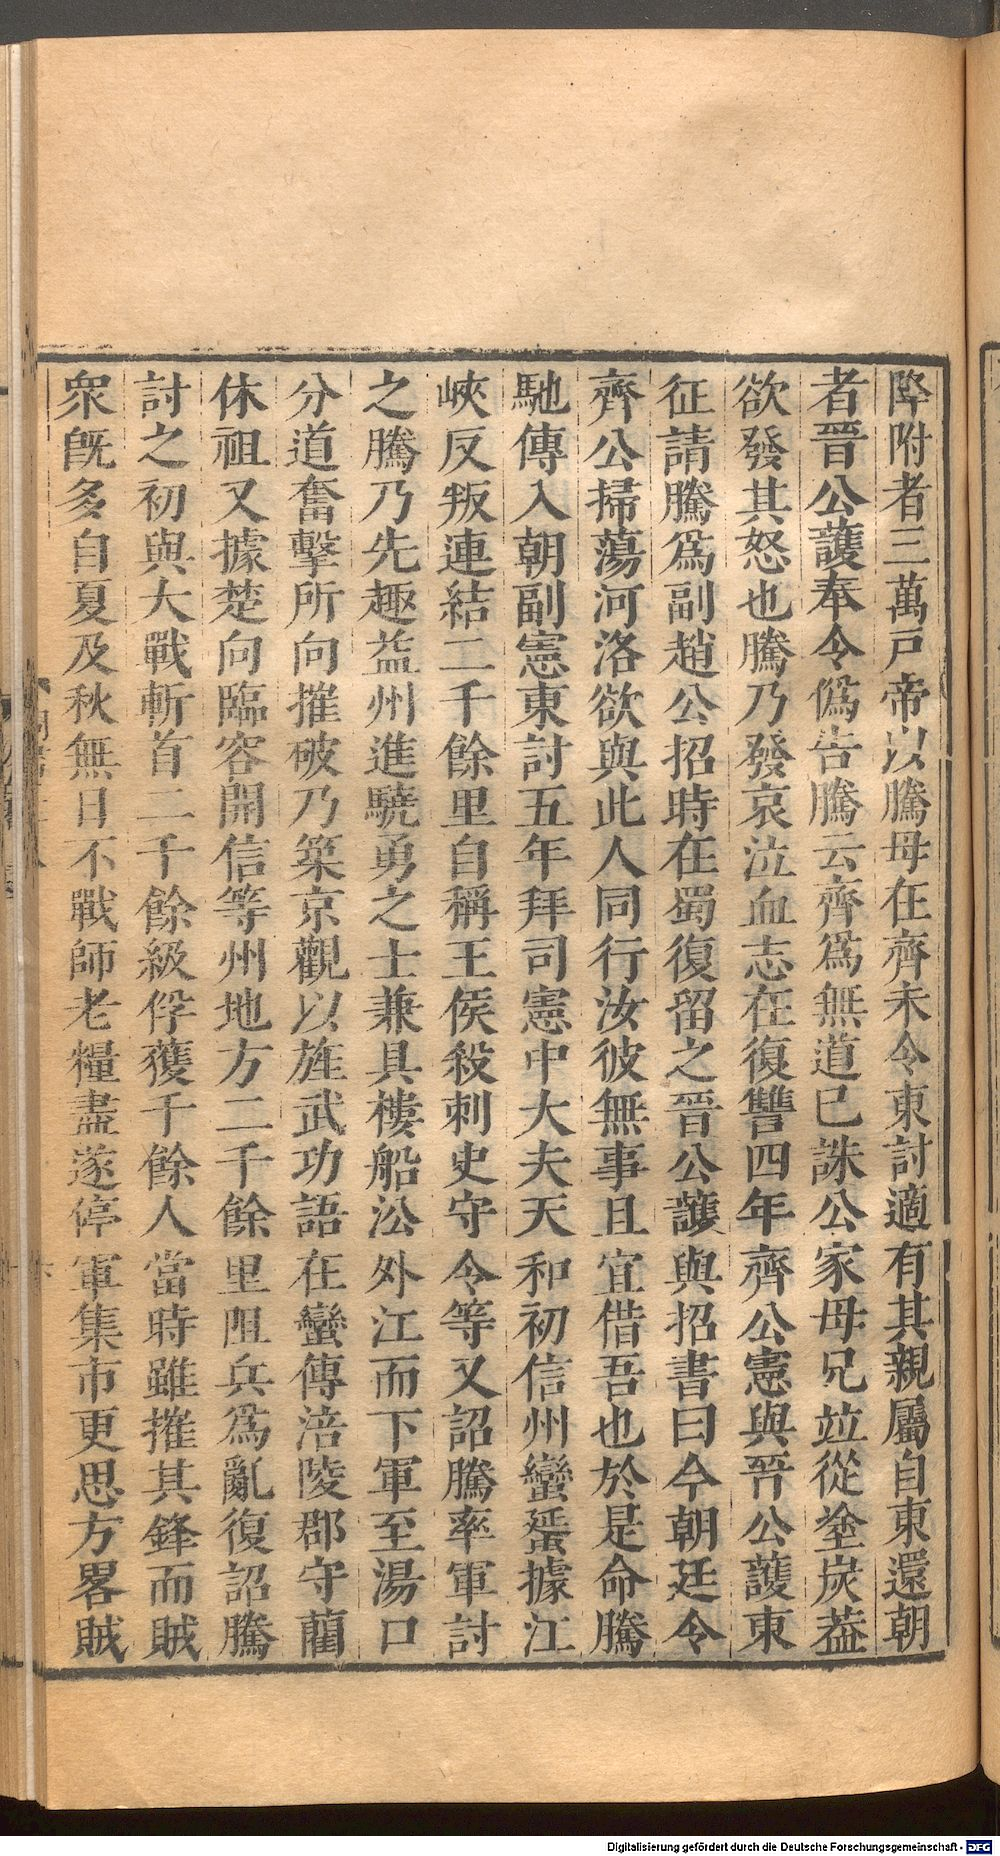 降附者三萬戸帝以騰母在齊未令東討適有其親屬自東還朝
者晉公護奉令僞告騰云齊爲無道已誅公家母兄竝從塗炭葢
欲發其怒也騰乃發哀泣血志在復讐四年齊公憲與晉公護東
征請騰爲副趙公招時在蜀復留之晉公護與招書曰今朝廷令
齊公掃蕩河洛欲與此人同行汝彼無事且宜借吾也於是命騰
馳傳入朝副憲東討五年拜司憲中大夫天和初信州蠻蜑據江
峽反叛連結二千餘里自稱王侯殺刺史守令等又詔騰率軍討
之騰乃先趣益州進驍勇之士兼具樓船沿外江而下軍至湯口
分道奮擊所向摧破乃築京觀以旌武功語在蠻傳涪陵郡守藺
休祖又據楚向臨容開信等州地方二千餘里阻兵爲亂復詔騰
討之初與大戰斬首二千餘級俘獲千餘人當時雖摧其鋒而賊
衆旣多自夏及秋無日不戰師老糧盡遂停軍集市更思方畧賊
Digitalisierung gefördert durch die Deutsche Forschungsgemeinschaft - DFG